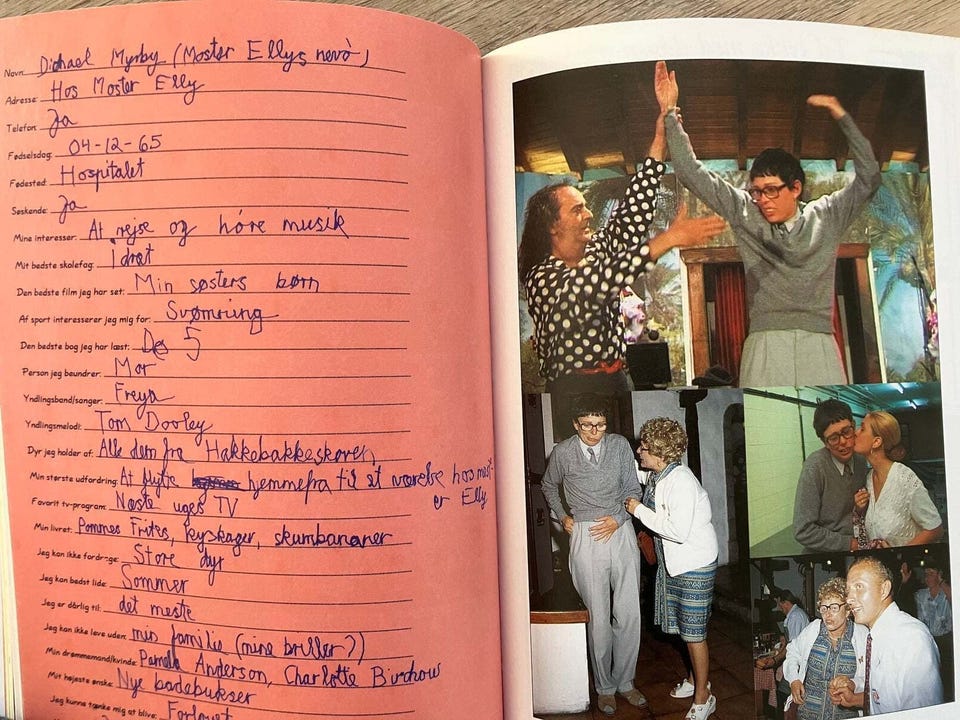 Navn: Dichael Myrby (Moster Ellys nevø)
Adresse: Hos Moster Elly
Telefon: Ja
Fødselsdag: 04-12-65
Fødested: Hospitalet
Søskende: Ja
Mine interesser: At rejse og høre musik
Mit bedste skolefag: idræt
Den bedste film jeg har set: Min søsters børn
Af sport interesserer jeg mig for: Svømning
Den bedste bog jeg har læst: De 5
Person jeg beundrer: Mor
Yndlingsband/sanger: Freya
Yndlingsmelodi: Tom Dooley
Dyr jeg holder af: Alle dem fra Hakkebakkeskoven
Min største udfordring: At flytte hjemmefra til et værelse hos most-
er Elly
Favorit tv-program: Næste uges TV
Min livret: Pommes Frites, kyskager, skumbananer
Jeg kan ikke fordrage: Store dyr
Jeg kan bedst lide: Sommer
Jeg er dårlig til: det meste
Jeg kan ikke leve uden: min familie (mine briller?)
Min drømmemand/kvinde: Pamella Anderson, Charlotte Birchow
Mit højeste ønske: Nye badebukser
Jeg kunne tænke mig at blive: Forlovet